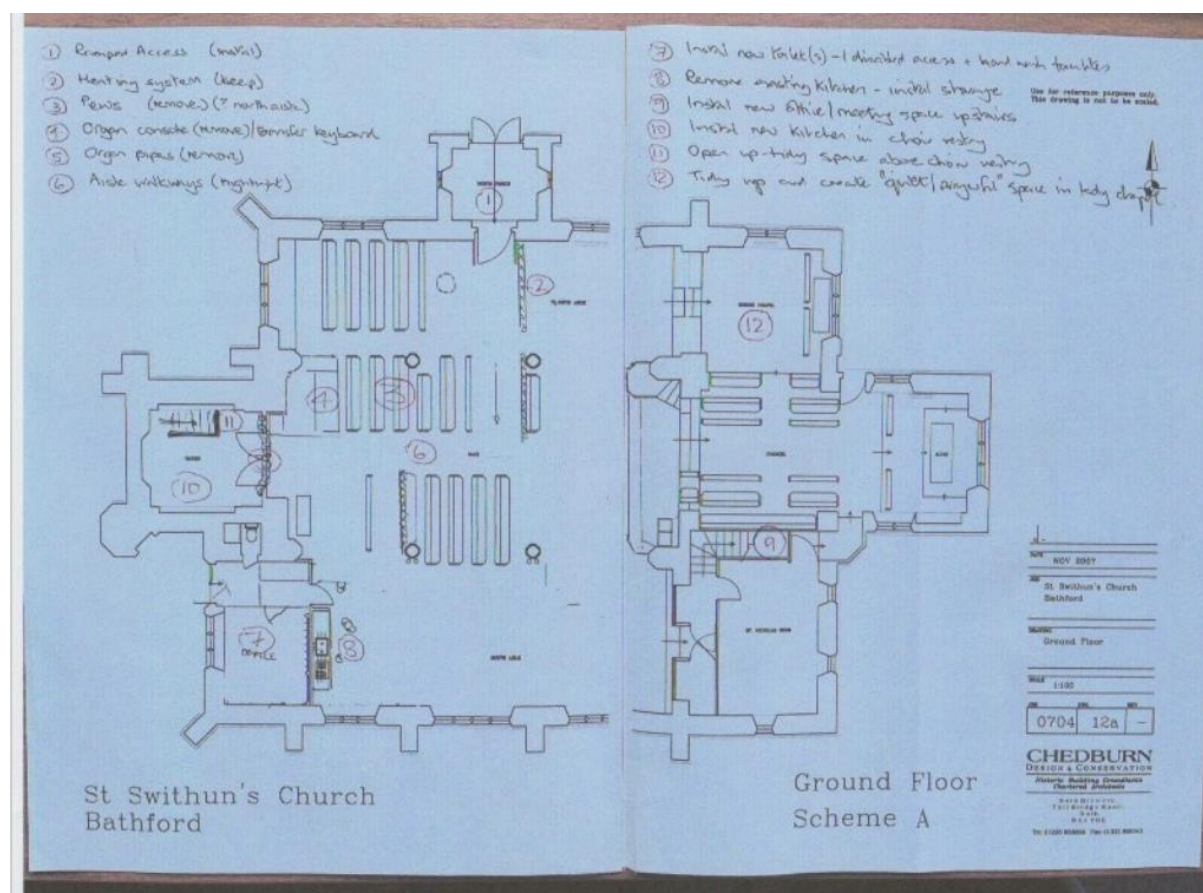 ① Ramped Access (metal)
② Heating system (keep)
③ Pews (remove) (? north aisle)
④ Organ console (remove)/transfer keyboard
⑤ Organ pipes (remove)
⑥ Aisle walkways (highlight)
⑦ Instal new toilet(s) - 1 disabled access + hand wash
⑧ Remove existing Kitchen - instal storage
⑨ Instal new office/meeting space upstairs
⑩ Instal new Kitchen in choir vestry
⑪ Open up-tidy space above choir vestry
⑫ Tidy up and create "quiet/prayerful" space in lady chapel
Use for reference purposes only.
This drawing is not to be scaled.
①
②
NORTH AISLE
⑫
③
④
⑥
NAVE
⑪
⑩
CHANCEL
ALTAR
⑨
⑦
OFFICE
⑧
SOUTH AISLE
ST. NICHOLAS ROOM
DATE NOV 2007
JOB St Swithun's Church
Bathford
DRAWING Ground Floor
SCALE 1:100
0704 12a -
CHEDBURN
DESIGN & CONSERVATION
Historic Building Consultants
Chartered Architects
St Swithun's Church
Bathford
Ground Floor
Scheme A